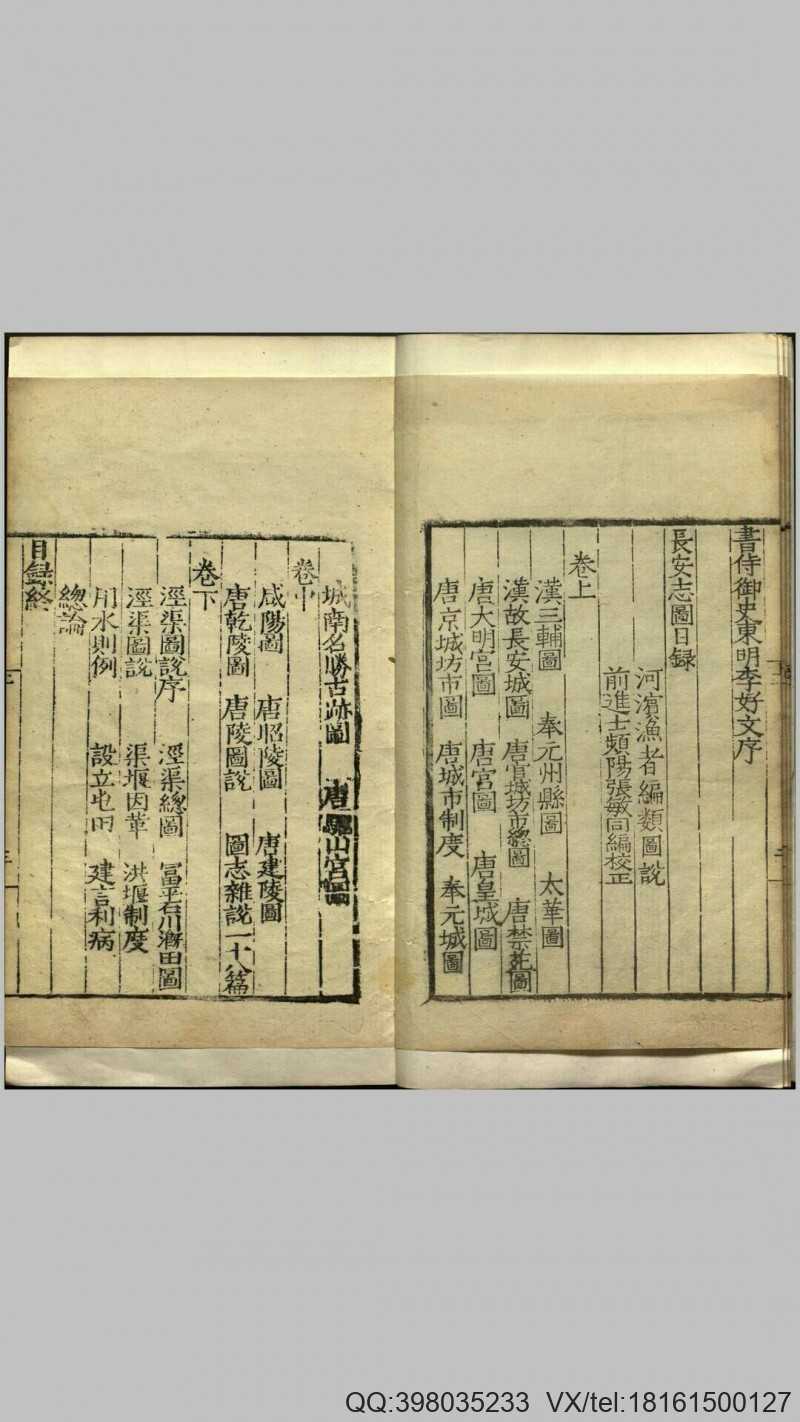 書侍御史東明李好文序
長安志圖目録
河濱漁者編類圖說
前進士頻陽張敏同編校正
卷上
漢三輔圖 奉元州縣圖 太華圖
漢故長安城圖 唐宮城坊市總圖 唐禁苑圖
唐大明宮圖 唐宮圖 唐皇城圖
唐京城坊市圖 唐城市制度 奉元城圖
城南名勝古跡圖 唐驪山宮圖
卷中
咸陽圖 唐昭陵圖 唐建陵圖
唐乾陵圖 唐陵圖說 圖志雜說一十八篇
卷下
涇渠圖說序 涇渠總圖 富平石川溉田圖
涇渠圖說 渠堰因革 洪堰制度
用水則例 設立屯田 建言利病
總論
目録終
QQ:398035233 VX/tel:18161500127